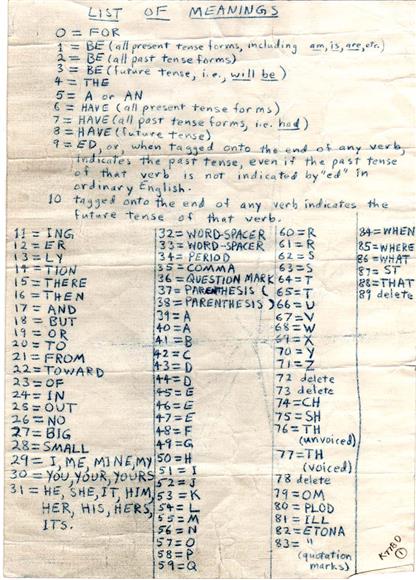 LIST OF MEANINGS
0 = FOR
1 = BE (all present tense forms, including am, is, are, etc.)
2 = BE (all past tense forms)
3 = BE (future tense, i.e., will be)
4 = THE
5 = A or AN
6 = HAVE (all present tense forms)
7 = HAVE (all past tense forms, i.e. had)
8 = HAVE (future tense)
9 = ED, or, when tagged onto the end of any verb,
indicates the past tense, even if the past tense
of that verb is not indicated by "ed" in
ordinary English.
10 tagged onto the end of any verb indicates the
future tense of that verb.
11 = ING
12 = ER
13 = LY
14 = TION
15 = THERE
16 = THEN
17 = AND
18 = BUT
19 = OR
20 = TO
21 = FROM
22 = TOWARD
23 = OF
24 = IN
25 = OUT
26 = NO
27 = BIG
28 = SMALL
29 = I, ME, MINE, MY
30 = YOU, YOUR, YOURS
31 = HE, SHE, IT, HIM,
HER, HIS, HERS,
ITS.
32 = WORD-SPACER
33 = WORD-SPACER
34 = PERIOD
35 = COMMA
36 = QUESTION MARK
37 = PARENTHESIS (
38 = PARENTHESIS )
39 = A
40 = A
41 = B
42 = C
43 = D
44 = D
45 = E
46 = E
47 = E
48 = F
49 = G
50 = H
51 = I
52 = J
53 = K
54 = L
55 = M
56 = N
57 = O
58 = P
59 = Q
60 = R
61 = R
62 = S
63 = S
64 = T
65 = T
66 = U
67 = V
68 = W
69 = X
70 = Y
71 = Z
72 delete
73 delete
74 = CH
75 = SH
76 = TH
(unvoiced)
77 = TH
(voiced)
78 delete
79 = OM
80 = PLOD
81 = ILL
82 = ETONA
83 = "
(quotation
marks)
84 = WHEN
85 = WHERE
86 = WHAT
87 = ST
88 = THAT
89 delete
①